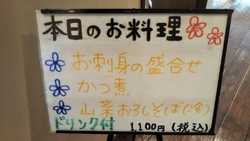 本日のお料理
お刺身の盛合せ
かつ煮
山菜おろしそば(冷)
ドリンク付 1,100円(税込)